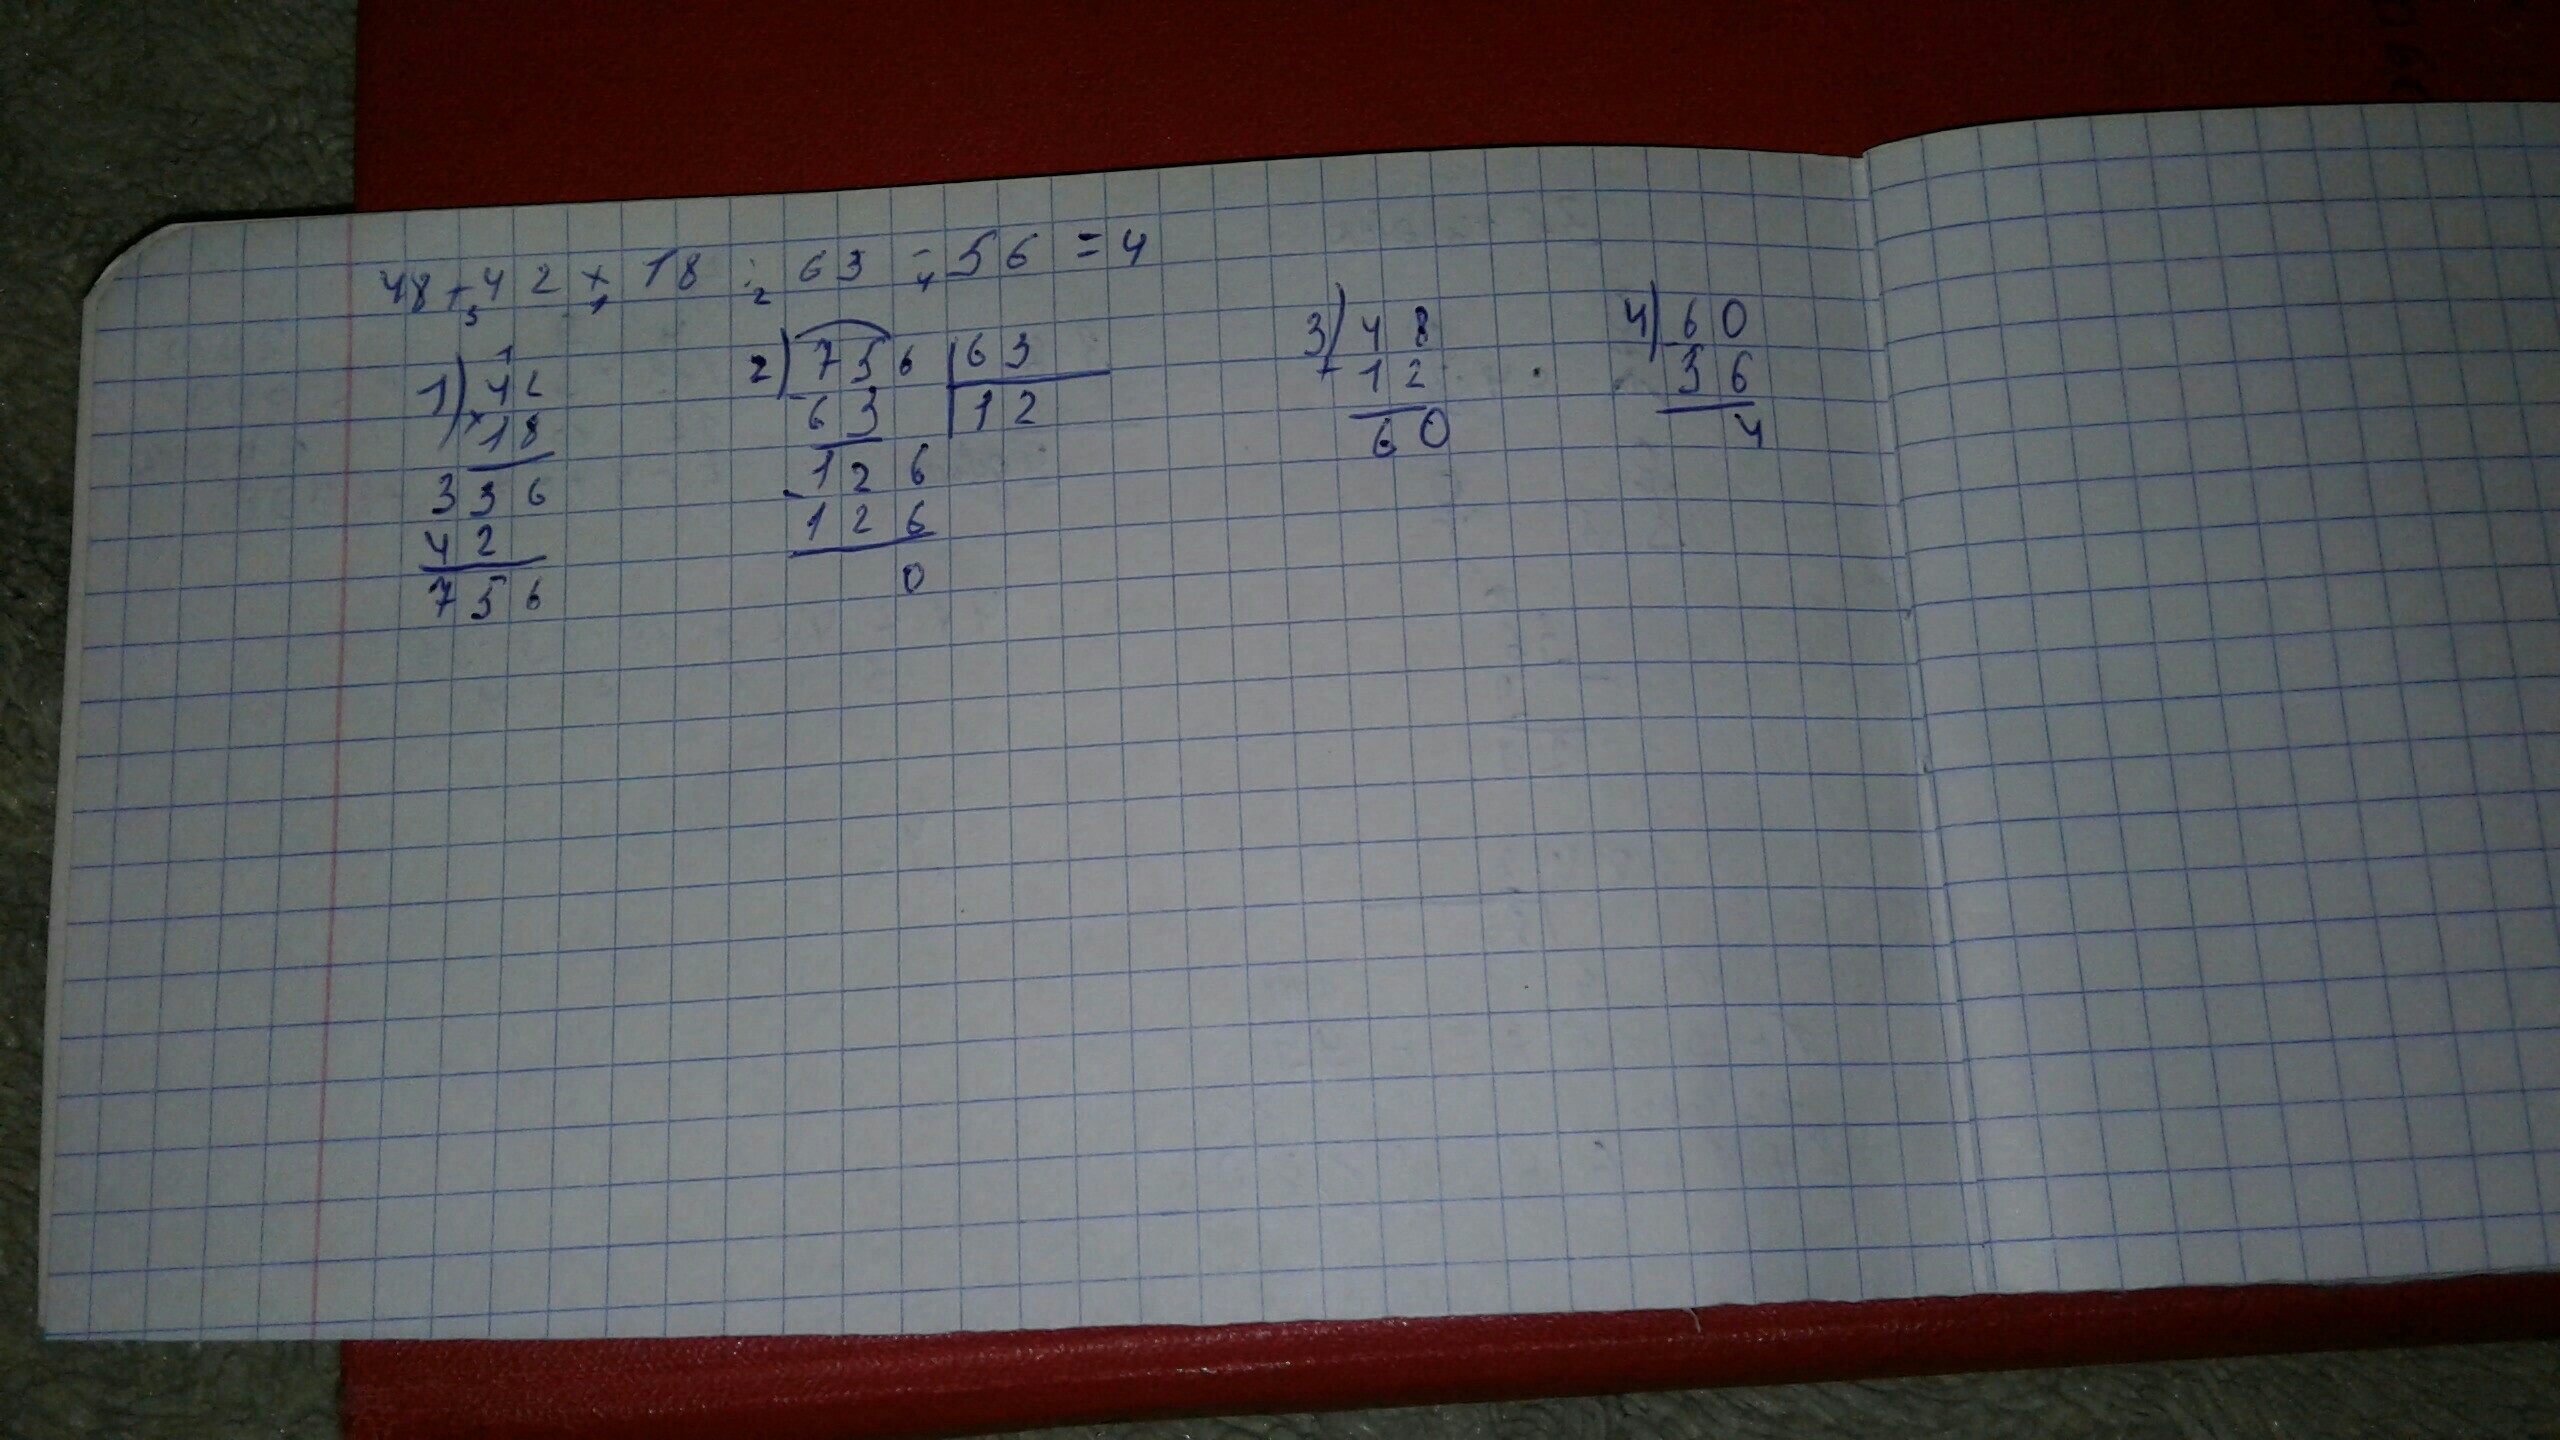 48 + 42 × 18 : 63 - 56 = 4
3 1 2 4
1) 42
1
× 18
336
42
756
2) 756 | 63
- 63 | 12
126
- 126
0
3) 48
+ 12
60
4) 60
- 56
4